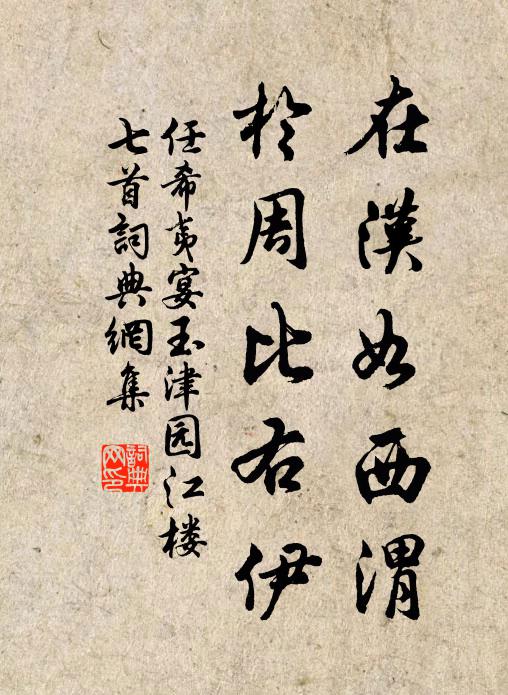 在漢如西渭
於周比右伊
任希夷宴玉津园江楼
七首詞典網集
詞典網印